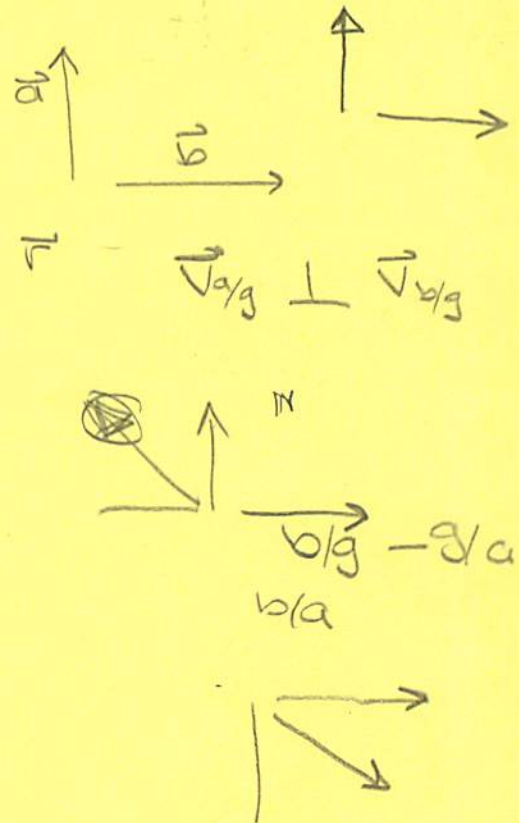 a
b
V⃗a/g ⊥ V⃗b/g
b/g - g/a
b/a